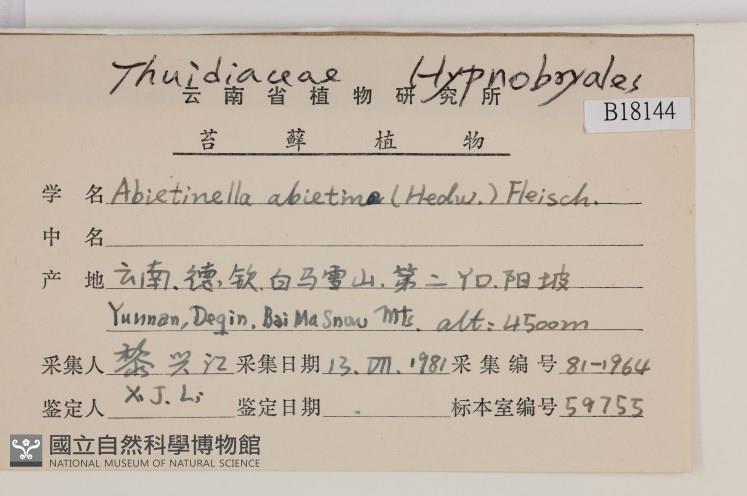 Thuidiaceae Hypnobryales
云南省植物研究所
B18144
苔藓植物
学名 Abietinella abietina (Hedw.) Fleisch.
中名
产地 云南、德钦、白马雪山、第二丫口、阳坡
Yunnan, Deqin, Bai Ma Snow Mts. alt: 4500m
采集人 黎兴江 采集日期 13.VII.1981 采集编号 81-1964
鉴定人 X.J.Li 鉴定日期 标本室编号 59755
國立自然科學博物館
NATIONAL MUSEUM OF NATURAL SCIENCE